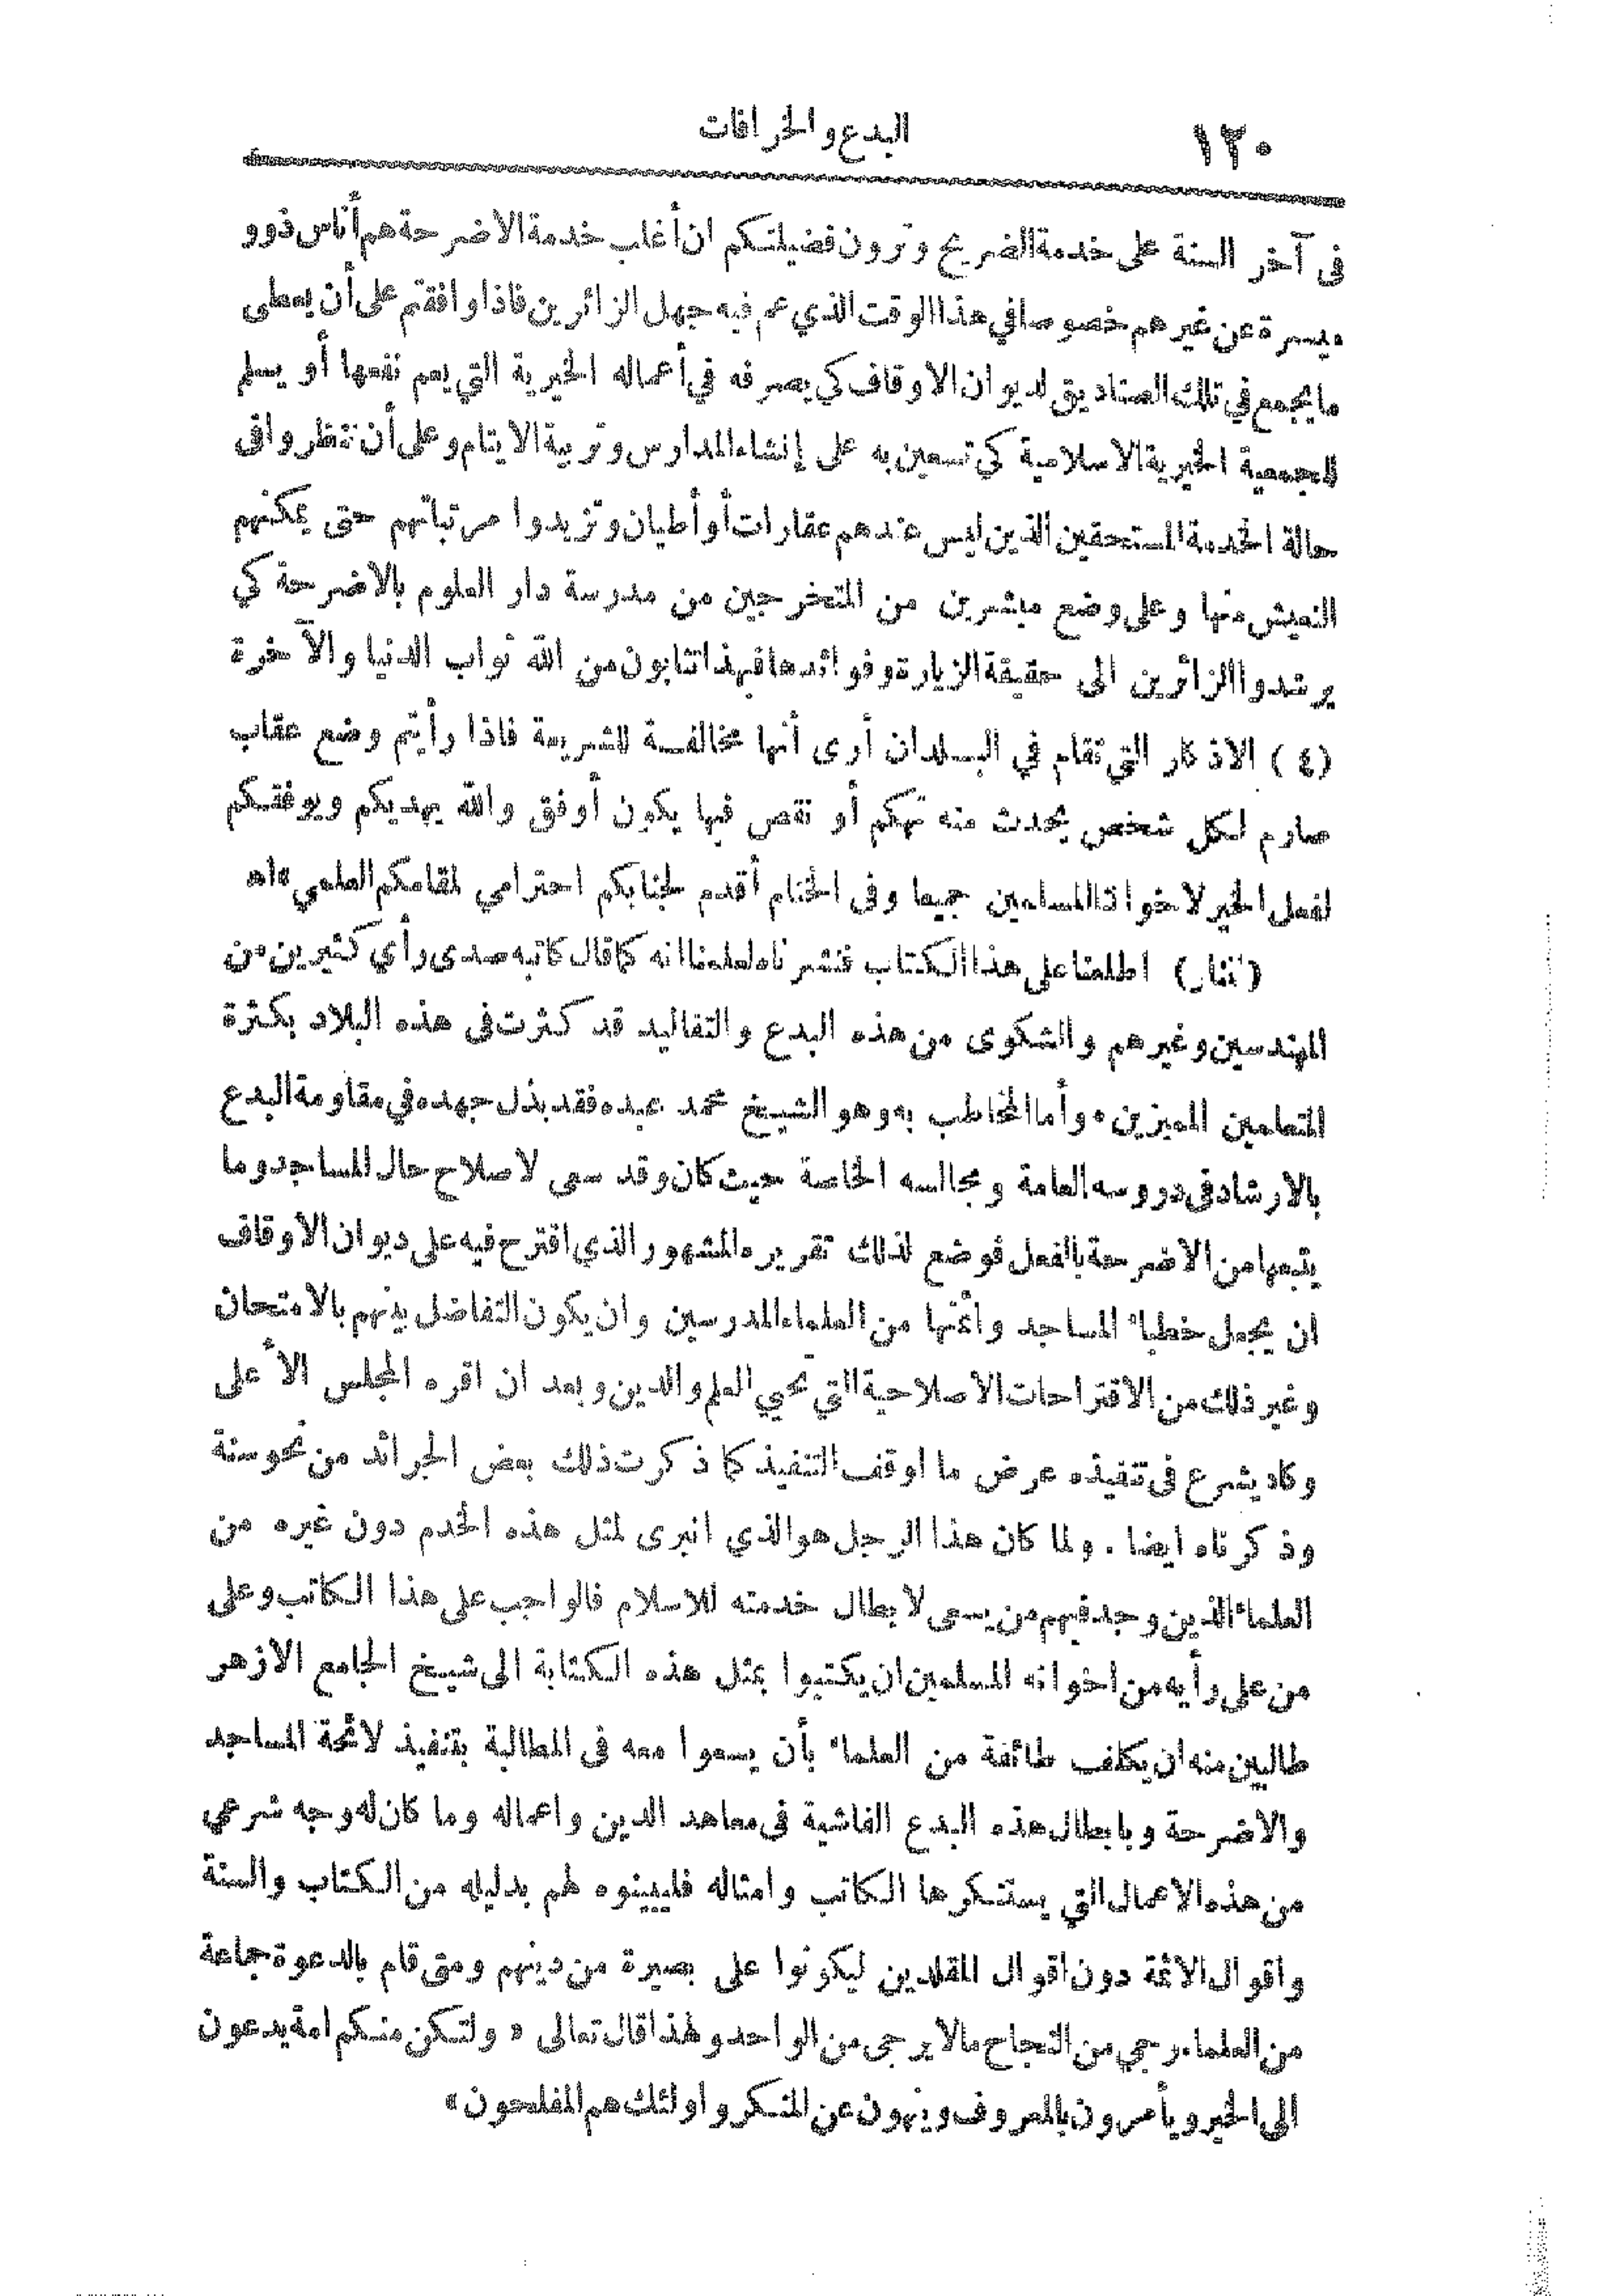 ١٢٠ البدع والخرافات
فى آخر السنة على خدمة الضريح وترون فضيلتكم ان أغلب خدمة الاضرحة هم أناس ذوو
ميسرة عن غيرهم خصوصا في هذا الوقت الذي عم فيه جهل الزائرين فاذا وافقتم على أن يعطى
ما يجمع في تلك الصناديق لديوان الاوقاف كي يصرفه في أعماله الخيرية التي يعم نفعها أو يسلم
للجمعية الخيرية الاسلامية كي تستعين به على إنشاء المدارس وتربية الايتام وعلى أن تنظروا فى
حالة الخدمة المستحقين الذين ليس عندهم عقارات أو أطيان وتزيدوا مرتباتهم حتى يمكنهم
التعيش منها وعلى وضع مبشرين من المتخرجين من مدرسة دار العلوم بالاضرحة كي
يرشدوا الزائرين الى حقيقة الزيارة وفوائدها فبهذا تثابون من الله ثواب الدنيا والآخرة
(٤) الاذكار التي تقام في البلدان أرى أنها مخالفة للشريعة فاذا رأيتم وضع عقاب
صارم لكل شخص يحدث منه تهكم أو نقص فيها يكون أوفق والله يهديكم ويوفقكم
لفعل الخير لاخواننا المسلمين جميعا وفى الختام أقدم لجنابكم احترامي لمقامكم العلمي» اه
(المنار) اطلعنا على هذا الكتاب فنشرناه لعلمنا انه كما قال كاتبه صدى رأي كثيرين من
المهندسين وغيرهم والشكوى من هذه البدع والتقاليد قد كثرت فى هذه البلاد بكثرة
المتعلمين المميزين. وأما المخاطب به وهو الشيخ محمد عبده فقد بذل جهده في مقاومة البدع
بالارشاد فى دروسه العامة ومجالسه الخاصة حيث كان وقد سعى لاصلاح حال المساجد وما
يتبعها من الاضرحة بالفعل فوضع لذلك تقريره المشهور الذي اقترح فيه على ديوان الأوقاف
ان يجعل خطباء المساجد وأئمتها من العلماء المدرسين وان يكون التفاضل بينهم بالامتحان
وغير ذلك من الاقتراحات الاصلاحية التي تحيي العلم والدين وبعد ان اقره المجلس الأعلى
وكاد يشرع فى تنفيذه عرض ما اوقف التنفيذ كما ذكرت ذلك بعض الجرائد من نحو سنة
وذكرناه ايضا. ولما كان هذا الرجل هو الذي انبرى لمثل هذه الخدم دون غيره من
العلماء الذين وجد فيهم من يسعى لابطال خدمته للاسلام فالواجب على هذا الكاتب وعلى
من على رأيه من اخوانه المسلمين ان يكتبوا بمثل هذه الكتابة الى شيخ الجامع الازهر
طالبين منه ان يكلف طائفة من العلماء بأن يسعوا معه فى المطالبة بتنفيذ لائحة المساجد
والاضرحة وبابطال هذه البدع الفاشية فى معاهد الدين واعماله وما كان له وجه شرعي
من هذه الاعمال التي يستنكرها الكاتب وامثاله فليبينوه لهم بدليله من الكتاب والسنة
واقوال الائمة دون اقوال المقلدين ليكونوا على بصيرة من دينهم ومتى قام بالدعوة جماعة
من العلماء رجي من النجاح مالا يرجى من الواحد ولهذا قال تعالى « ولتكن منكم امة يدعون
الى الخير ويأمرون بالمعروف وينهون عن المنكر واولئك هم المفلحون»